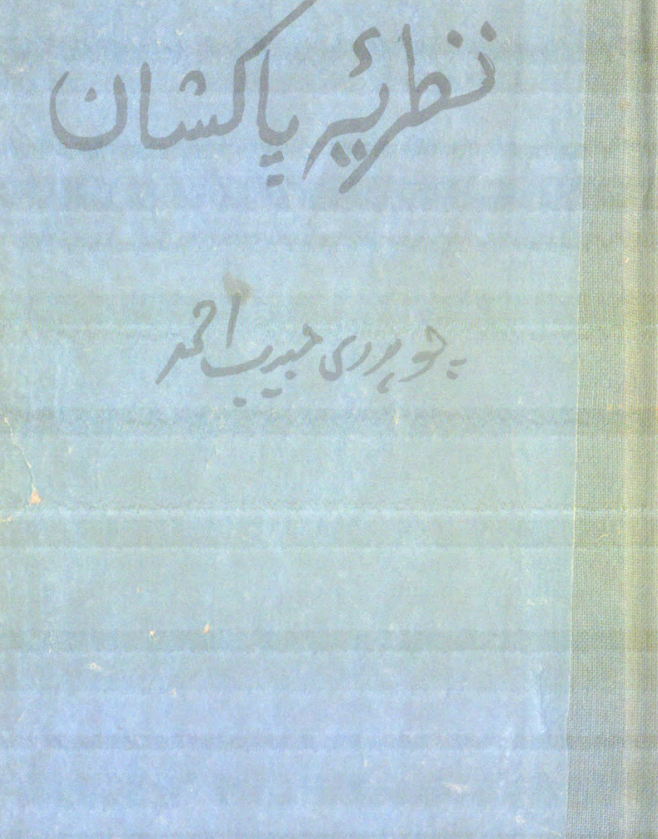 نظریۂ پاکستان
چوہدری حبیب احمد